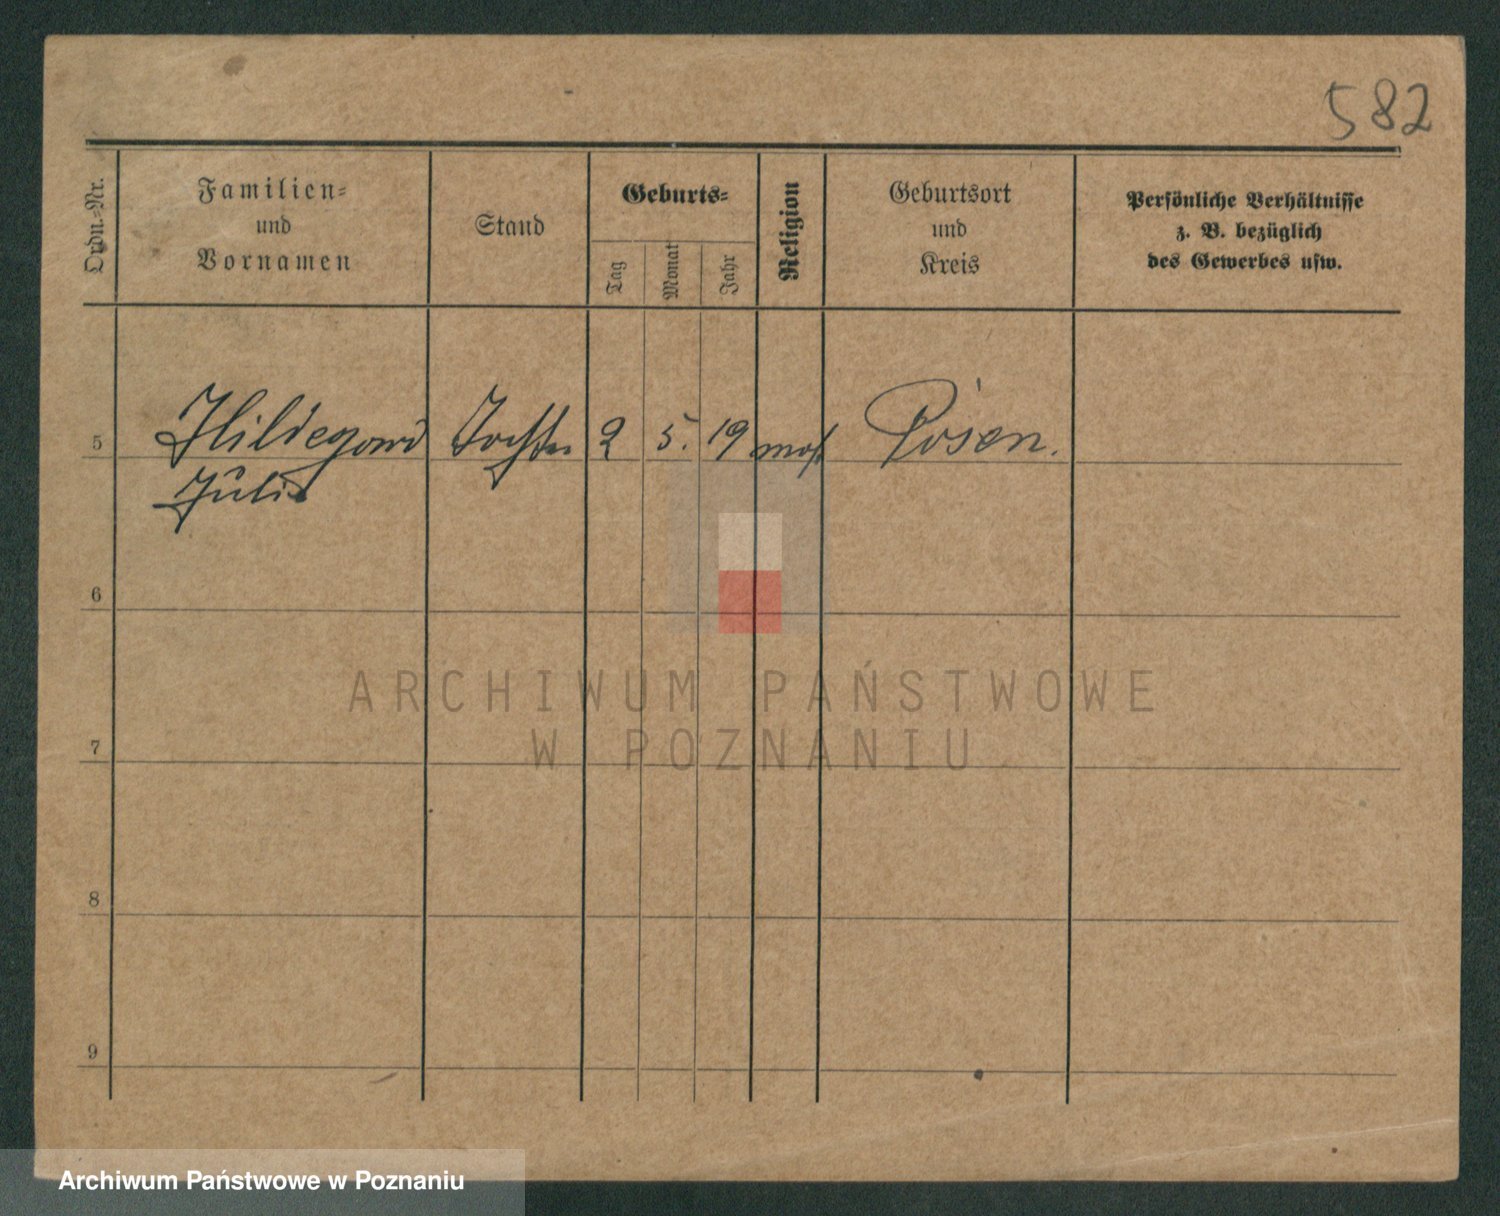 582
Ordn.-Nr.
Familien-
und
Vornamen
Stand
Geburts-
Tag
Monat
Jahr
Religion
Geburtsort
und
Kreis
Persönliche Verhältnisse
z. B. bezüglich
des Gewerbes usw.
5 Hildegard Tochter 2 5. 19 mos. Posen.
Julie
6
7
8
9
ARCHIWUM PAŃSTWOWE
W POZNANIU
Archiwum Państwowe w Poznaniu